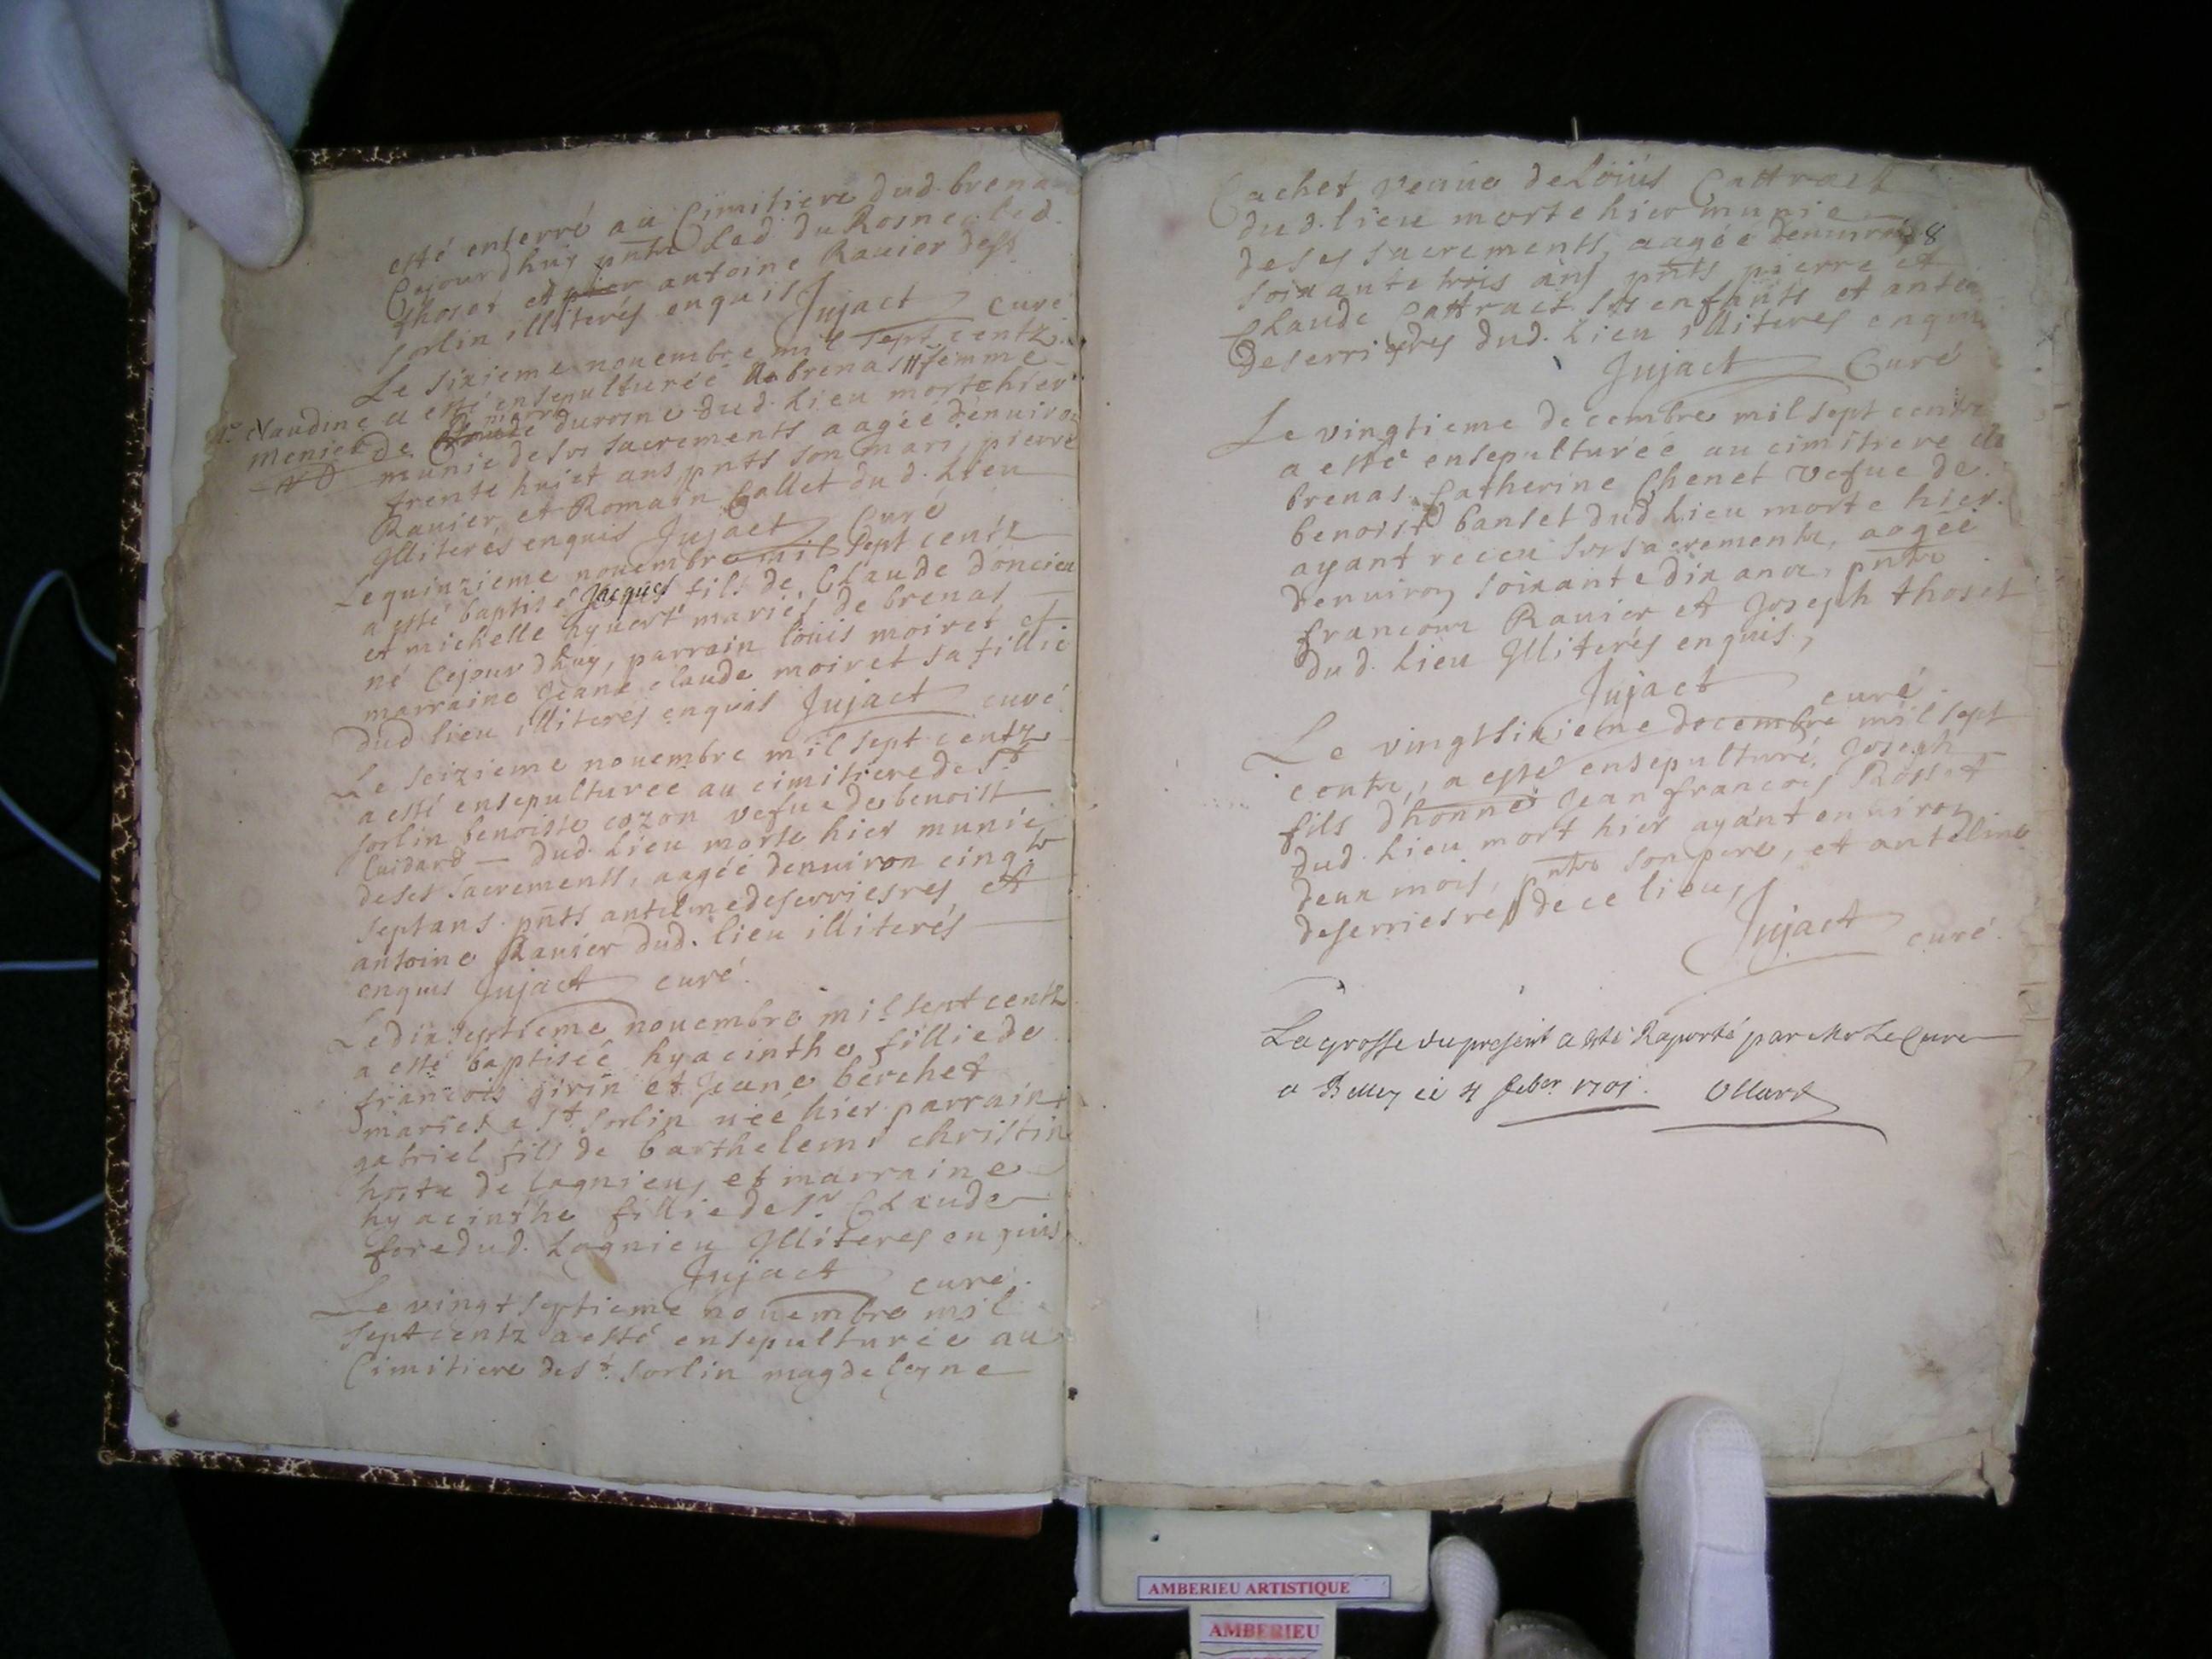 esté enterré au Cimitiere dud. brena
Cejourdhuy pnts Led. du Rosne led.
thoset et pier antoine Rauier dess.
sorlin illiterés enquis Jujact curé
Le sixieme nouembre mil sept centz
a esté ensepulturée a brenas # femme
# Claudine
meunier de Claude pierre durosne dud. Lieu morte hier
munie de ses sacrements aagéé dénuiron
trente huict ans pnts son mari pierre
Rauier et Romain Callet dud. Lieu
Illiterés enquis Jujact Curé
Le quinzieme nouembre mil sept centz
a esté baptisé Jacques fils de Claude doncieu
et michelle hyuert mariés de brenas
né Cejourdhuy, parrain louis moiret et
marraine Jeane claude moiret sa fillie
dud lieu illiterés enquis Jujact curé
Le seizieme nouembre mil sept centz
a esté ensepulturéé au cimitiere de St
sorlin benoiste cozon vefue de benoist
Cuidard — dud. Lieu morte hier munie
de ses sacrements, aagéé denuiron cinqte
sept ans pnts antelme deserriesres et
antoine Rauier dud. lieu illiterés
enquis Jujact curé
Le dixseptieme nouembre mil sept centz
a esté baptiséé hyacinthe fillie de
francois girin et Jeane berchet
mariés a St. Sorlin néé hier parrain
gabriel fils de barthelemi christin
hoste de lagnieu, et marraine
hyacinthe fillie de Sr. Claude
fore dud. Lagnieu Illiteres enquis
Jujact curé
Le vingt septieme nouembre mil
sept centz a esté ensepulturéé au
Cimitiere de St. Sorlin magdeleyne
Cachet veuue de Loüis Cattract
dud. lieu morte hier munie
de ses sacrements, aagéé denuiron
8
soixante trois ans pnts pierre et
Claude Cattract ses enfants et
Deserrieres dud. Lieu illiteres
Jujact Curé
Le vingtieme decembre mil sept centz
a esté ensepulturéé au cimitiere de
brenas Catherine Chenet vefue de
benoist banset dud Lieu morte hier
ayant receu ses sacrements, aagéé
denuiron soixante dix ans, pnts
francois Rauier et Joseph thoset
dud. Lieu Illiterés enquis,
Jujact curé
Le vingtsixieme decembre mil sept
centz, a esté ensepulturé Joseph
fils dhonné Jean francois Rosset
dud. Lieu mort hier ayant enuiron
deux mois, pnts son pere, et antelme
deserriesres de ce lieu,
Jujact curé
La grosse du present a esté Raporté par Mr Le Curé
a Belley ce 4 feber 1701. Ollard
AMBERIEU ARTISTIQUE
AMBERIEU